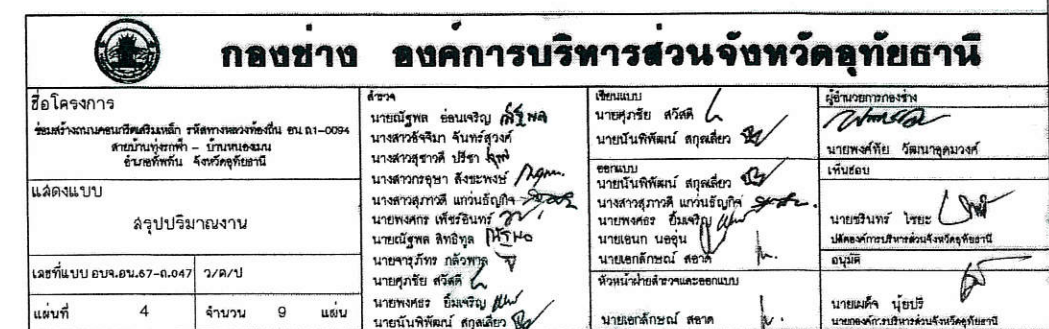 กองช่าง องค์การบริหารส่วนจังหวัดอุทัยธานี
ชื่อโครงการ
ซ่อมสร้างถนนคอนกรีตเสริมเหล็ก รหัสทางหลวงท้องถิ่น อน.ถ1-0094
สายบ้านทุ่งรกฟ้า - บ้านหนองมน
อำเภอทัพทัน จังหวัดอุทัยธานี
แสดงแบบ
สรุปปริมาณงาน
เลขที่แบบ อบจ.อน.67-ถ.047 ว/ด/ป
แผ่นที่ 4 จำนวน 9 แผ่น
สำรวจ
นายณัฐพล อ่อนเจริญ
นางสาวอัจจิมา จันทร์สุวงศ์
นางสาวสุชาวดี ปรีชา
นางสาวกรอุษา สังขะพงษ์
นางสาวสุภาวดี แกว่นธัญกิจ
นายพงศกร เพ็ชรอินทร์
นายณัฐพล สิทธิทูล
นายจารุภัทร กลัวพาล
นายศุภชัย สวัสดี
นายพงศธร ยิ้มเจริญ
นายนันพิพัฒน์ สกุลเลี่ยว
เขียนแบบ
นายศุภชัย สวัสดี
นายนันพิพัฒน์ สกุลเลี่ยว
ออกแบบ
นายนันพิพัฒน์ สกุลเลี่ยว
นางสาวสุภาวดี แกว่นธัญกิจ
นายพงศธร ยิ้มเจริญ
นายเอนก นออุ่น
นายเอกลักษณ์ สอาด
หัวหน้าฝ่ายสำรวจและออกแบบ
นายเอกลักษณ์ สอาด
ผู้อำนวยการกองช่าง
นายพงศ์ทัย วัฒนาอุดมวงศ์
เห็นชอบ
นายชรินทร์ ไชยะ
ปลัดองค์การบริหารส่วนจังหวัดอุทัยธานี
อนุมัติ
นายเผด็จ นุ้ยปรี
นายกองค์การบริหารส่วนจังหวัดอุทัยธานี